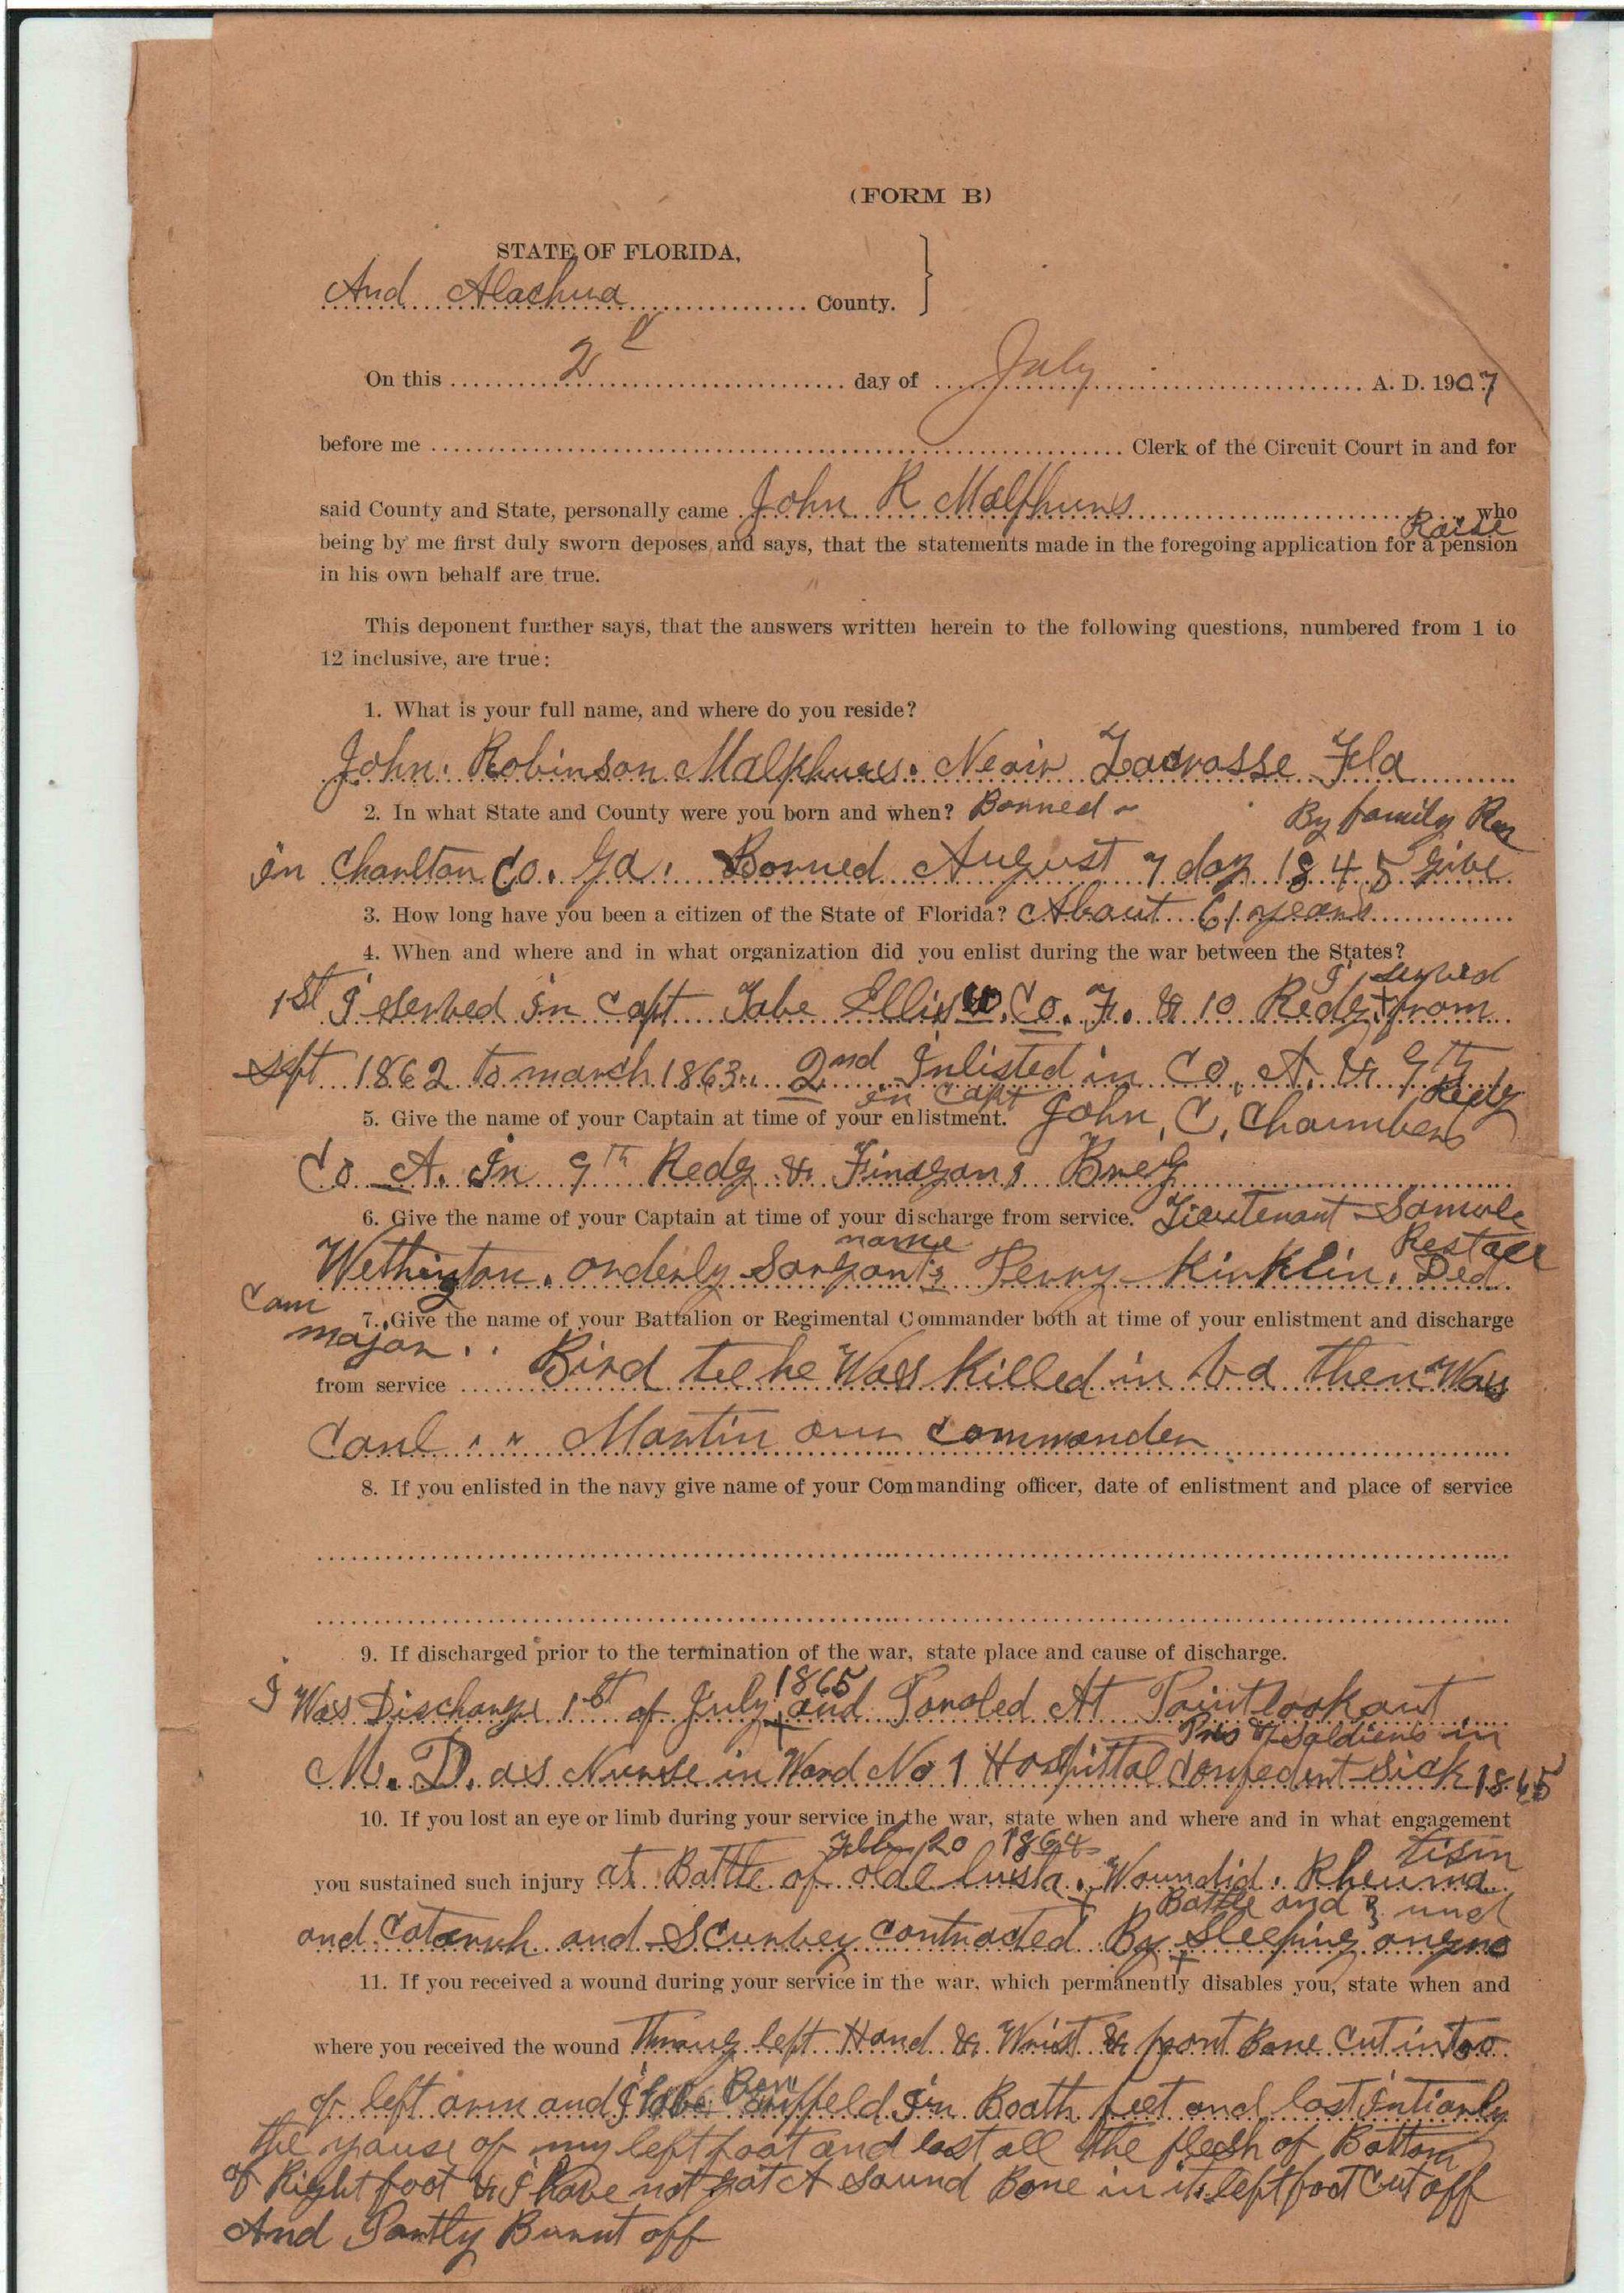 (FORM B)
STATE OF FLORIDA,
And Alachua County.
On this 2 day of July A. D. 1907
before me Clerk of the Circuit Court in and for
said County and State, personally came John R Malphurs who
Raise
being by me first duly sworn deposes and says, that the statements made in the foregoing application for a pension
in his own behalf are true.
This deponent further says, that the answers written herein to the following questions, numbered from 1 to
12 inclusive, are true:
1. What is your full name, and where do you reside?
John. Robinson Malphurs. Neair Lacrosse Fla
2. In what State and County were you born and when? Bonned
By family Rec
in Charlton Co. Ga. Borned August 7 day 1845 give
3. How long have you been a citizen of the State of Florida? About 61 years
4. When and where and in what organization did you enlist during the war between the States?
I served
1st I served in Capt Tabe Ellis Co. F. & 10 Redg from
Sept 1862 to march 1863. 2nd Inlisted in Co. A. & 9th
Redg
in Capt
5. Give the name of your Captain at time of your enlistment. John, C, Chambers
Co A. In 9th Redg & Finegans Breg
6. Give the name of your Captain at time of your discharge from service. Lieutenant Samule
name
Wethington. orderly Sargant's Perry Kinklin.
Cam
7. Give the name of your Battalion or Regimental Commander both at time of your enlistment and discharge
major..
from service Bird tel he Was Killed in Va then Was
Carl Martin our commander
8. If you enlisted in the navy give name of your Commanding officer, date of enlistment and place of service
9. If discharged prior to the termination of the war, state place and cause of discharge.
1865
I Was Discharge 1st of July and Paroled At Pointlookout
Pris soldiers in
M. D. as Nurse in Ward No 1 Hospittal confedert sick 1865
10. If you lost an eye or limb during your service in the war, state when and where and in what engagement
Feb 20 1864
tism
you sustained such injury at Battle of olde lusta. Woundid. Rheuma
Battle and
and Catarrh and Scurvey contracted By Sleeping on
11. If you received a wound during your service in the war, which permanently disables you, state when and
where you received the wound Throug left Hand & Wrist & front Bone cut in too
Ben
of left arm and I have in Boath feet and lost intiarly
the yause of my left foot and lost all the flesh of Bottom
of Right foot & I have not got A sound Bone in it. left foot cut off
And Partly Burnt off